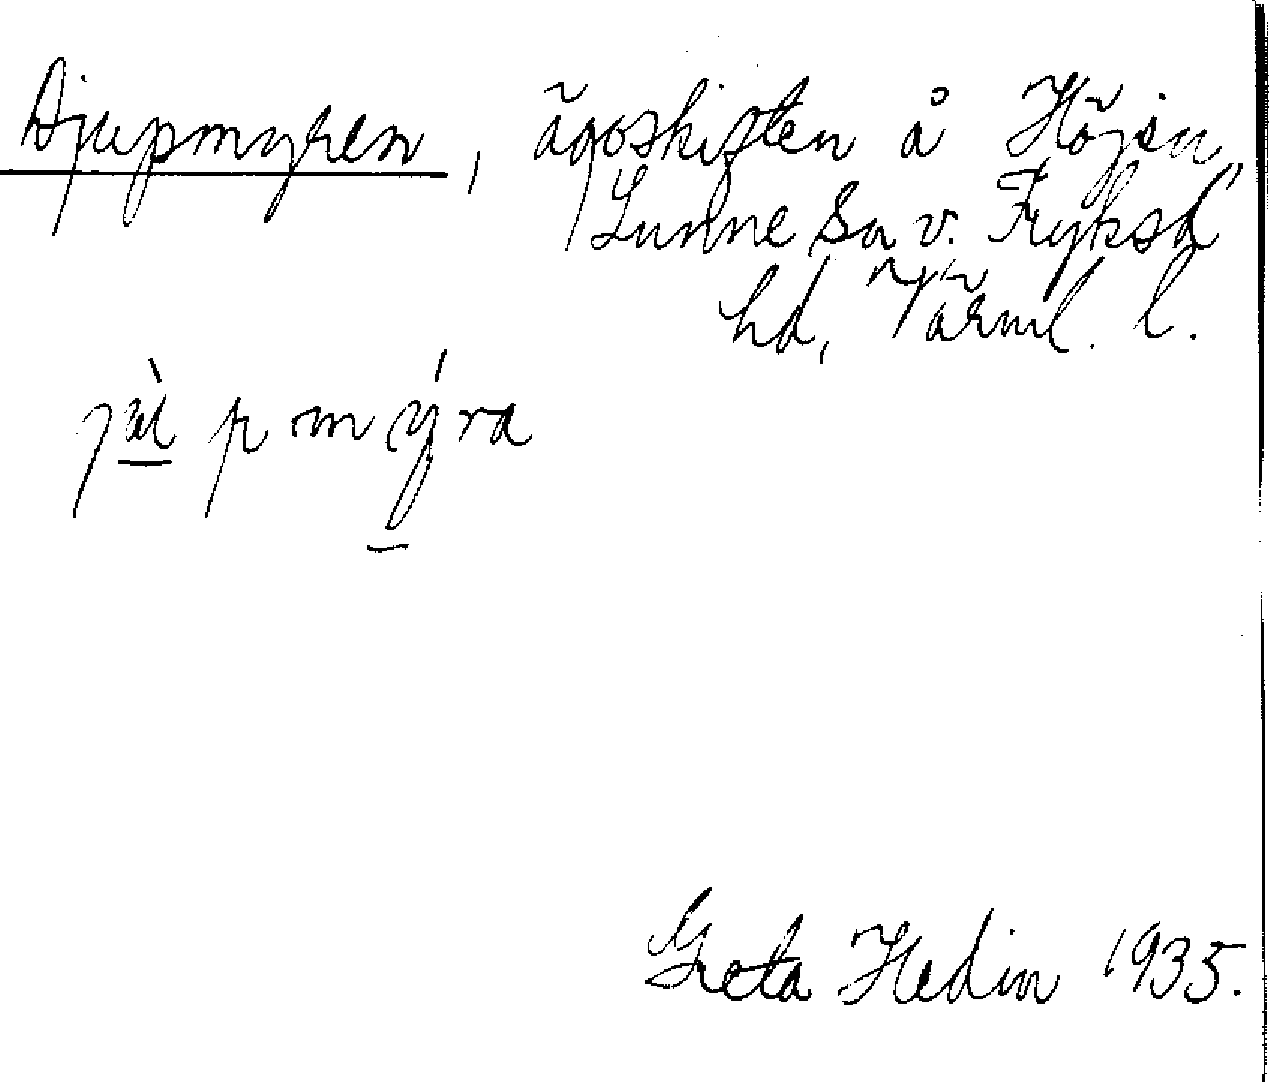 Djupmyren, ägoskiften å Höjen,
Sunne sn v. Fryksd
hd, Värml. l.
jùpmýra
Greta Hedin 1935.